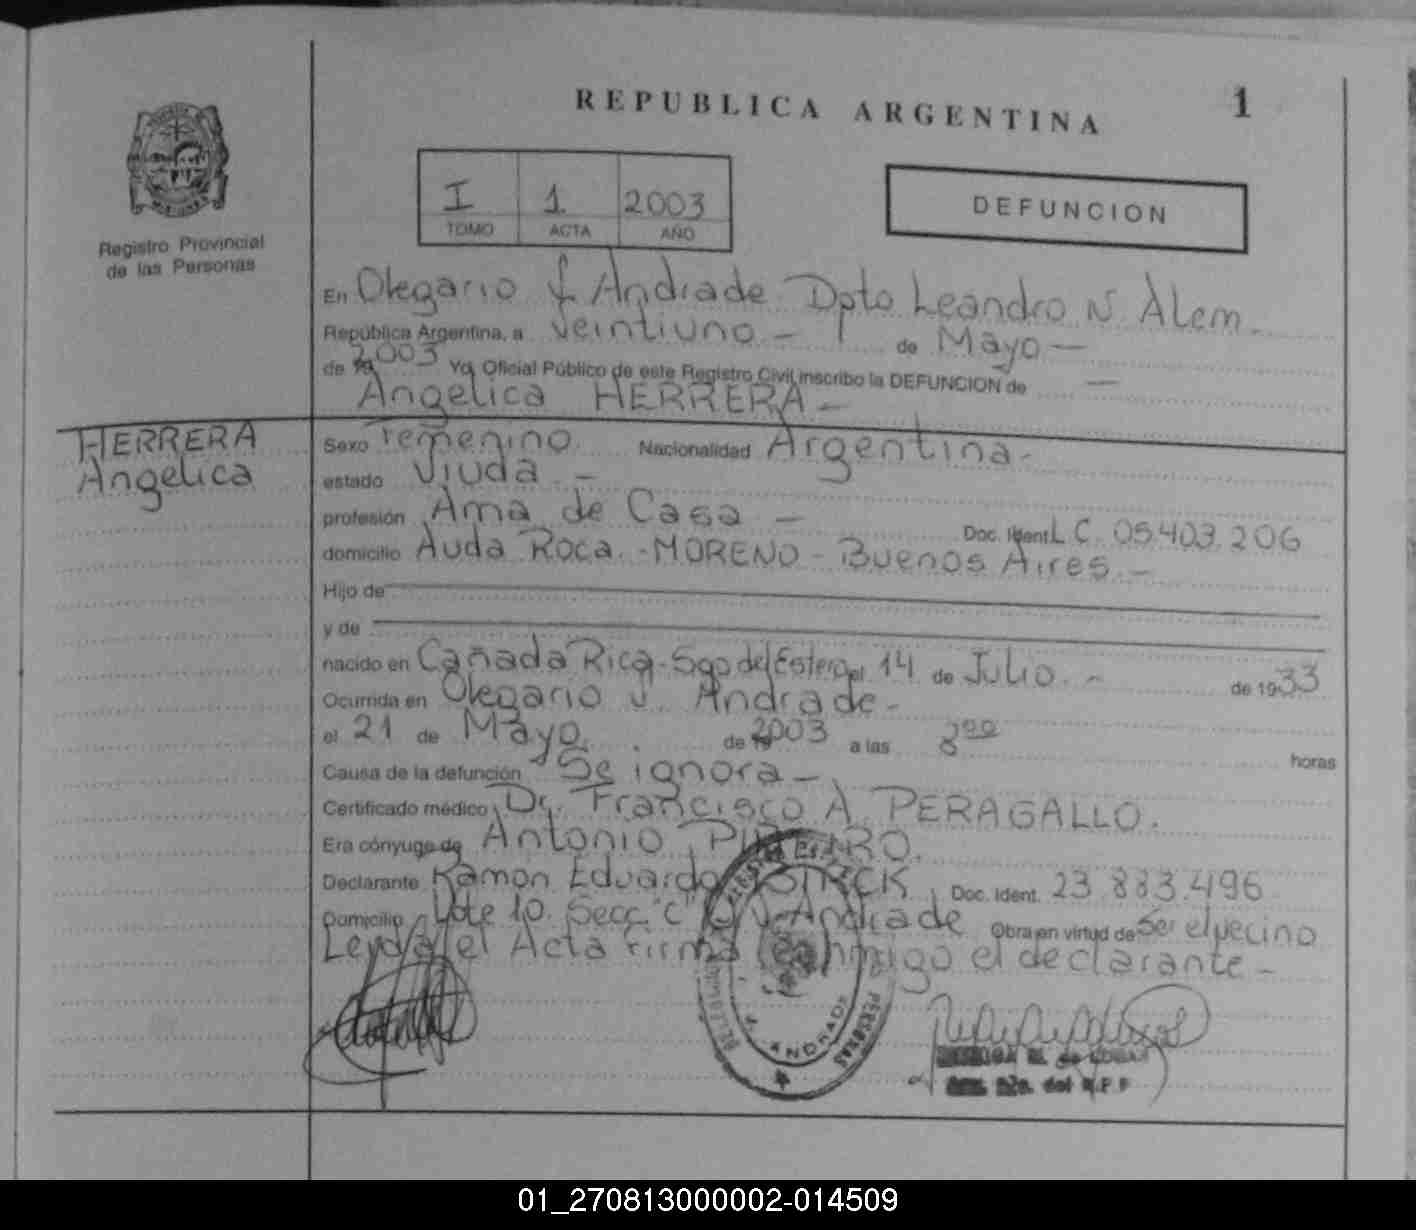 REPUBLICA ARGENTINA 1
I 1 2003
TOMO ACTA AÑO
DEFUNCION
Registro Provincial
de las Personas
En Olegario V Andrade Dpto Leandro N Alem
República Argentina, a veintiuno - de Mayo -
de 2003 Yo, Oficial Público de este Registro Civil inscribo la DEFUNCION de -
Angelica HERRERA -
HERRERA
Angelica
Sexo Femenino Nacionalidad Argentina -
estado Viuda. -
profesión Ama de Casa - Doc. Ident L C. 05.403.206
domicilio Avda Roca. - MORENO - Buenos Aires. -
Hijo de
y de
nacido en Cañada Rica - Sgo del Estero el 14 de Julio. - de 1933
Ocurrida en Olegario V. Andrade -
el 21 de Mayo. de 2003 a las 8 00 horas
Causa de la defunción Se ignora -
Certificado médico Dr. Francisco A. PERAGALLO.
Era cónyuge de Antonio
Declarante Ramon Eduardo Doc. Ident. 23.883.496
Domicilio Lote 10. Secc "C" V. Andrade Obra en virtud de Ser el vecino
Leyda el Acta firma conmigo el declarante -
ANDRADE
PERSONAS
01_270813000002-014509